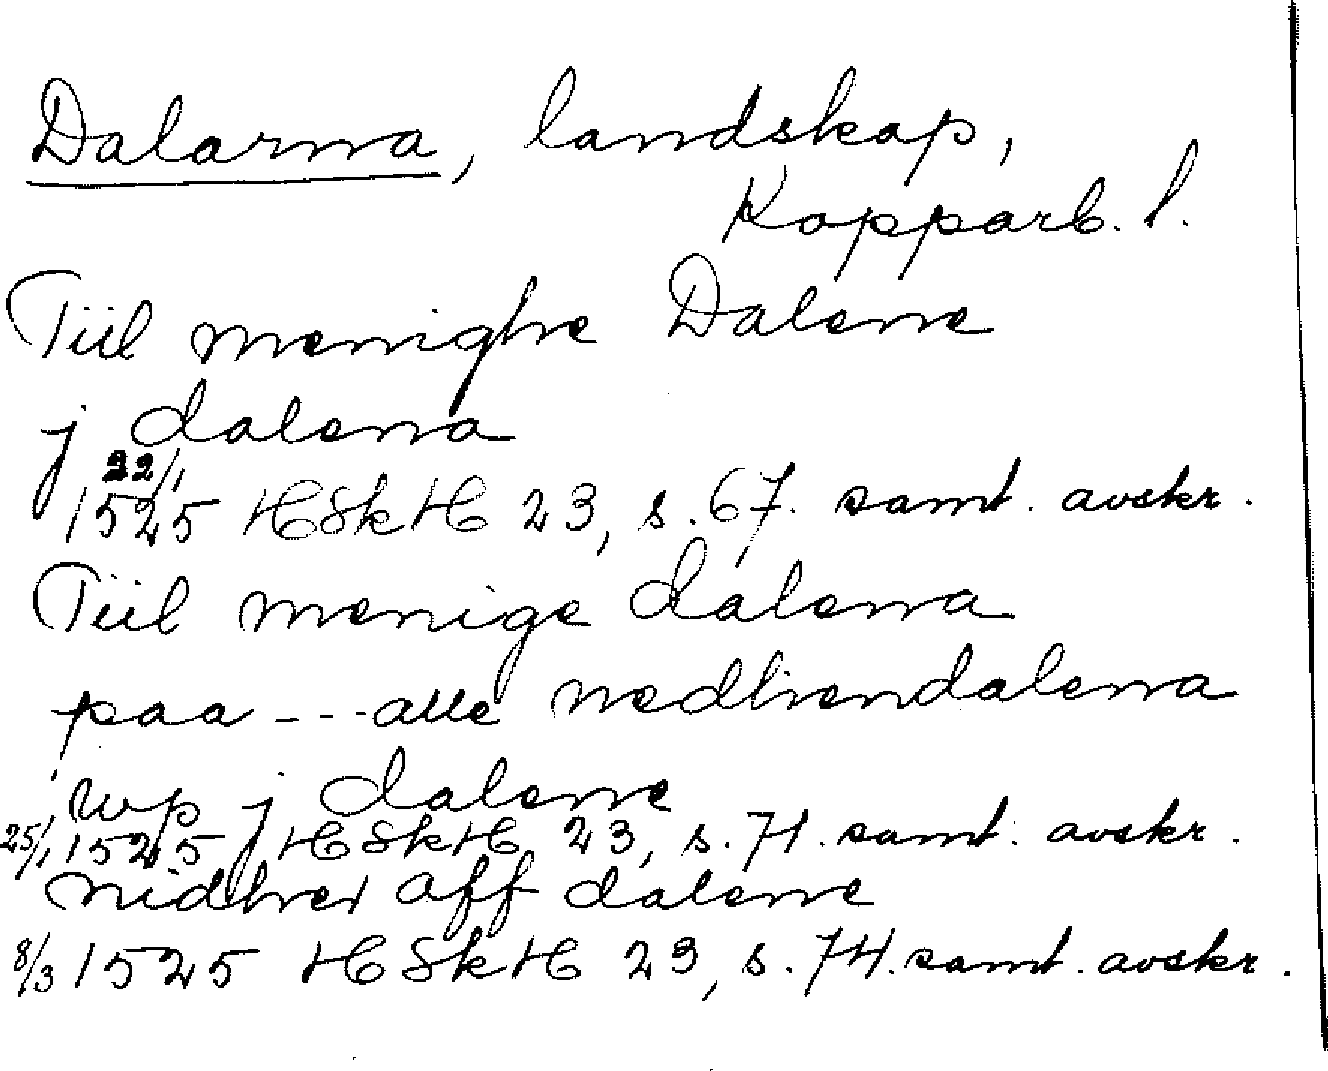 Dalarna, landskap,
Kopparb. l.
Tiil menighe Dalene
j dalena
22/1 1525 HSkH 23, s. 67. samt. avskr.
Tiil menige dalena
paa --- alle nedhendalena
wp j dalene
25/1 1525 HSkH 23, s. 71. samt. avskr.
nidher aff dalene
8/3 1525 HSkH 23, s. 74. samt. avskr.